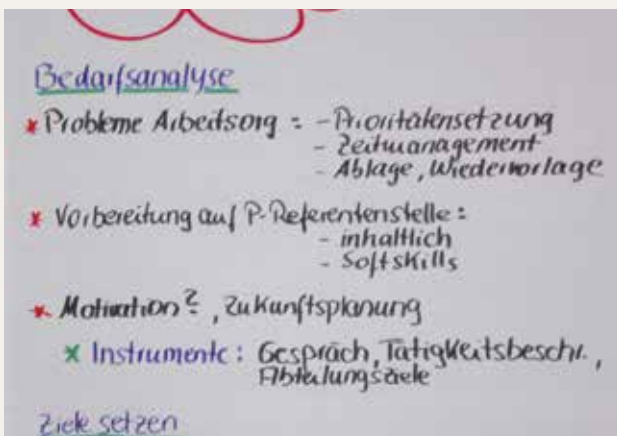 Bedarfsanalyse
* Probleme Arbeitsorg : - Prioritätensetzung
- Zeitmanagement
- Ablage, Wiedervorlage
* Vorbereitung auf P-Referentenstelle :
- inhaltlich
- Softskills
* Motivation?, Zukunftsplanung
* Instrumente : Gespräch, Tätigkeitsbeschr.,
Abteilungsziele
Ziele setzen